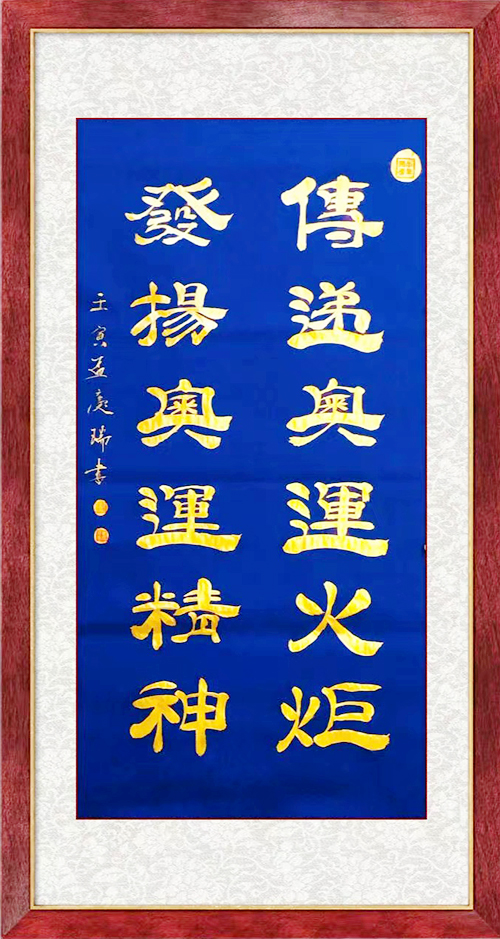 傳递奧運火炬
發揚奧運精神
壬寅孟庆瑞書